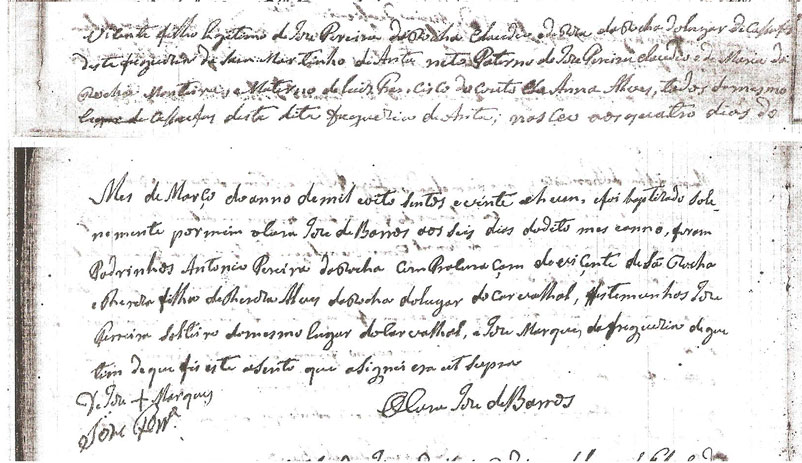 Vicente filho legitimo de Joze Pereira da Rocha Claudio e de Roza da Rocha do lugar de
desta freguezia de Sam Martinho de Anta neto Paterno de Joze Pereira Claudio e de Maria da
Rocha Monteira, e Materno de Luiz Francisco do Couto e Anna Alves, todos do mesmo
lugar de desta dita freguezia de Anta; nasceo aos quatro dias do
Mes de Março do anno de mil e oito sentos e vinte e hum, e foi baptizado sole-
nemente por mim o Cura Joze de Barros aos seis dias do dito mes e anno, foram
Padrinhos Antonio Pereira da Rocha com Procuraçam de Vicente de Rocha
e Thereza filha de Thereza Alves da Rocha do lugar do Carvalhal, testemunhas Joze
Pereira solteiro do mesmo lugar do Carvalhal, e Joze Marques da freguezia de gue
tim de que fis este asento que asignei era ut supra
De Joze + Marques
O Cura Joze de Barros
Joze Prª